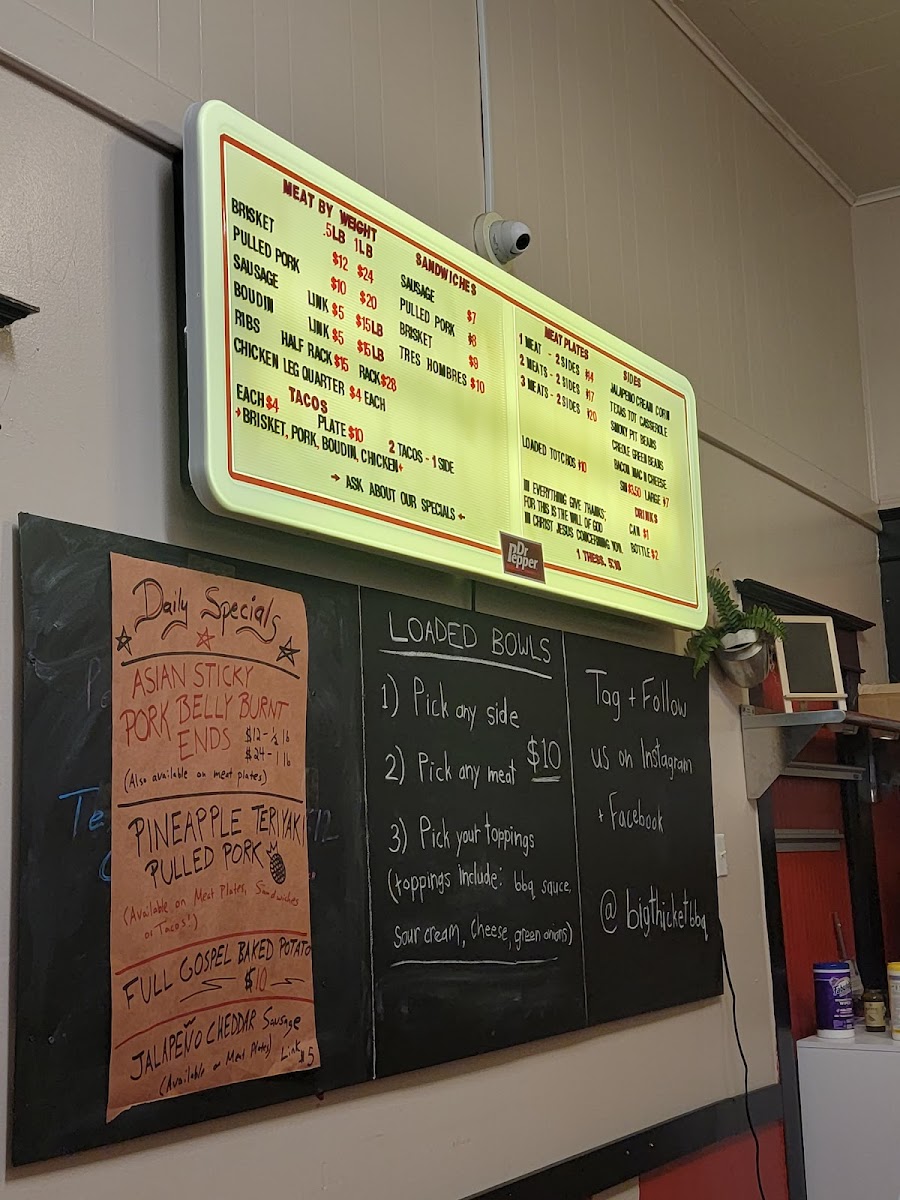 MEAT BY WEIGHT
.5LB 1LB
BRISKET $12 $24
PULLED PORK $10 $20
SAUSAGE LINK $5 $15LB
BOUDIN LINK $5 $15LB
RIBS HALF RACK $15 RACK $28
CHICKEN LEG QUARTER $4 EACH
TACOS
EACH $4 PLATE $10 2 TACOS - 1 SIDE
BRISKET, PORK, BOUDIN, CHICKEN
→ ASK ABOUT OUR SPECIALS ←
SANDWICHES
SAUSAGE $7
PULLED PORK $8
BRISKET $9
TRES HOMBRES $10
MEAT PLATES
1 MEAT - 2 SIDES $14
2 MEATS - 2 SIDES $17
3 MEATS - 2 SIDES $20
LOADED TOTCHOS $10
IN EVERYTHING GIVE THANKS;
FOR THIS IS THE WILL OF GOD
IN CHRIST JESUS CONCERNING YOU.
1 THESS. 5:18
SIDES
JALAPENO CREAM CORN
TEXAS TOT CASSEROLE
SMOKY PIT BEANS
CREOLE GREEN BEANS
BACON MAC N CHEESE
SM $3.50 LARGE $7
DRINKS
CAN $1
BOTTLE $2
Dr Pepper
Daily Specials
ASIAN STICKY
PORK BELLY BURNT
ENDS $12 - ½ lb
$24 - 1 lb
(Also available on meat plates)
PINEAPPLE TERIYAKI
PULLED PORK
(Available on Meat Plates, Sandwiches
or Tacos!)
FULL GOSPEL BAKED POTATO
$10
JALAPEÑO CHEDDAR Sausage
(Available on Meat Plates) Link $5
LOADED BOWLS
1) Pick any side
2) Pick any meat $10
3) Pick your toppings
(toppings include: bbq sauce,
sour cream, cheese, green onions)
Tag + Follow
us on Instagram
+ Facebook
@bigthicketbbq